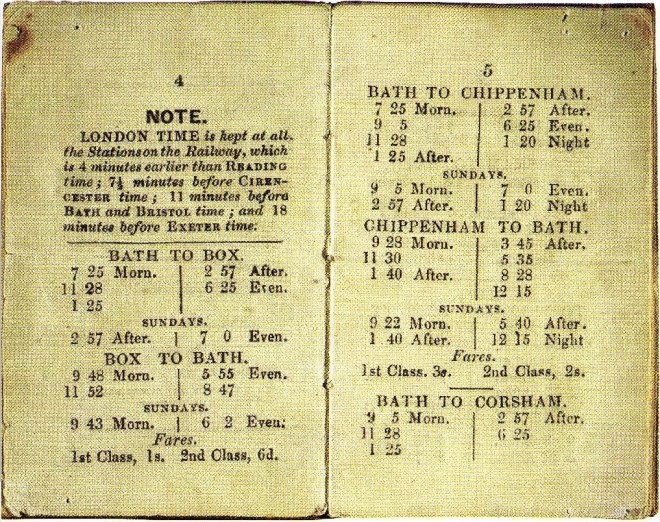 4
NOTE.
LONDON TIME is kept at all
the Stations on the Railway, which
is 4 minutes earlier than READING
time; 7½ minutes before CIREN-
CESTER time; 11 minutes before
BATH and BRISTOL time; and 18
minutes before EXETER time.
BATH TO BOX.
7 25 Morn. | 2 57 After.
11 28 | 6 25 Even.
1 25
SUNDAYS.
2 57 After. | 7 0 Even.
BOX TO BATH.
9 48 Morn. | 5 55 Even.
11 52 | 8 47
SUNDAYS.
9 43 Morn. | 6 2 Even.
Fares.
1st Class, 1s. 2nd Class, 6d.
5
BATH TO CHIPPENHAM.
7 25 Morn. | 2 57 After.
9 5 | 6 25 Even.
11 28 | 1 20 Night
1 25 After.
SUNDAYS.
9 5 Morn. | 7 0 Even.
2 57 After. | 1 20 Night
CHIPPENHAM TO BATH.
9 28 Morn. | 3 45 After.
11 30 | 5 35
1 40 After. | 8 28
12 15
SUNDAYS.
9 22 Morn. | 5 40 After.
1 40 After. | 12 15 Night
Fares.
1st Class. 3s. 2nd Class, 2s.
BATH TO CORSHAM.
9 5 Morn. | 2 57 After.
11 28 | 6 25
1 25